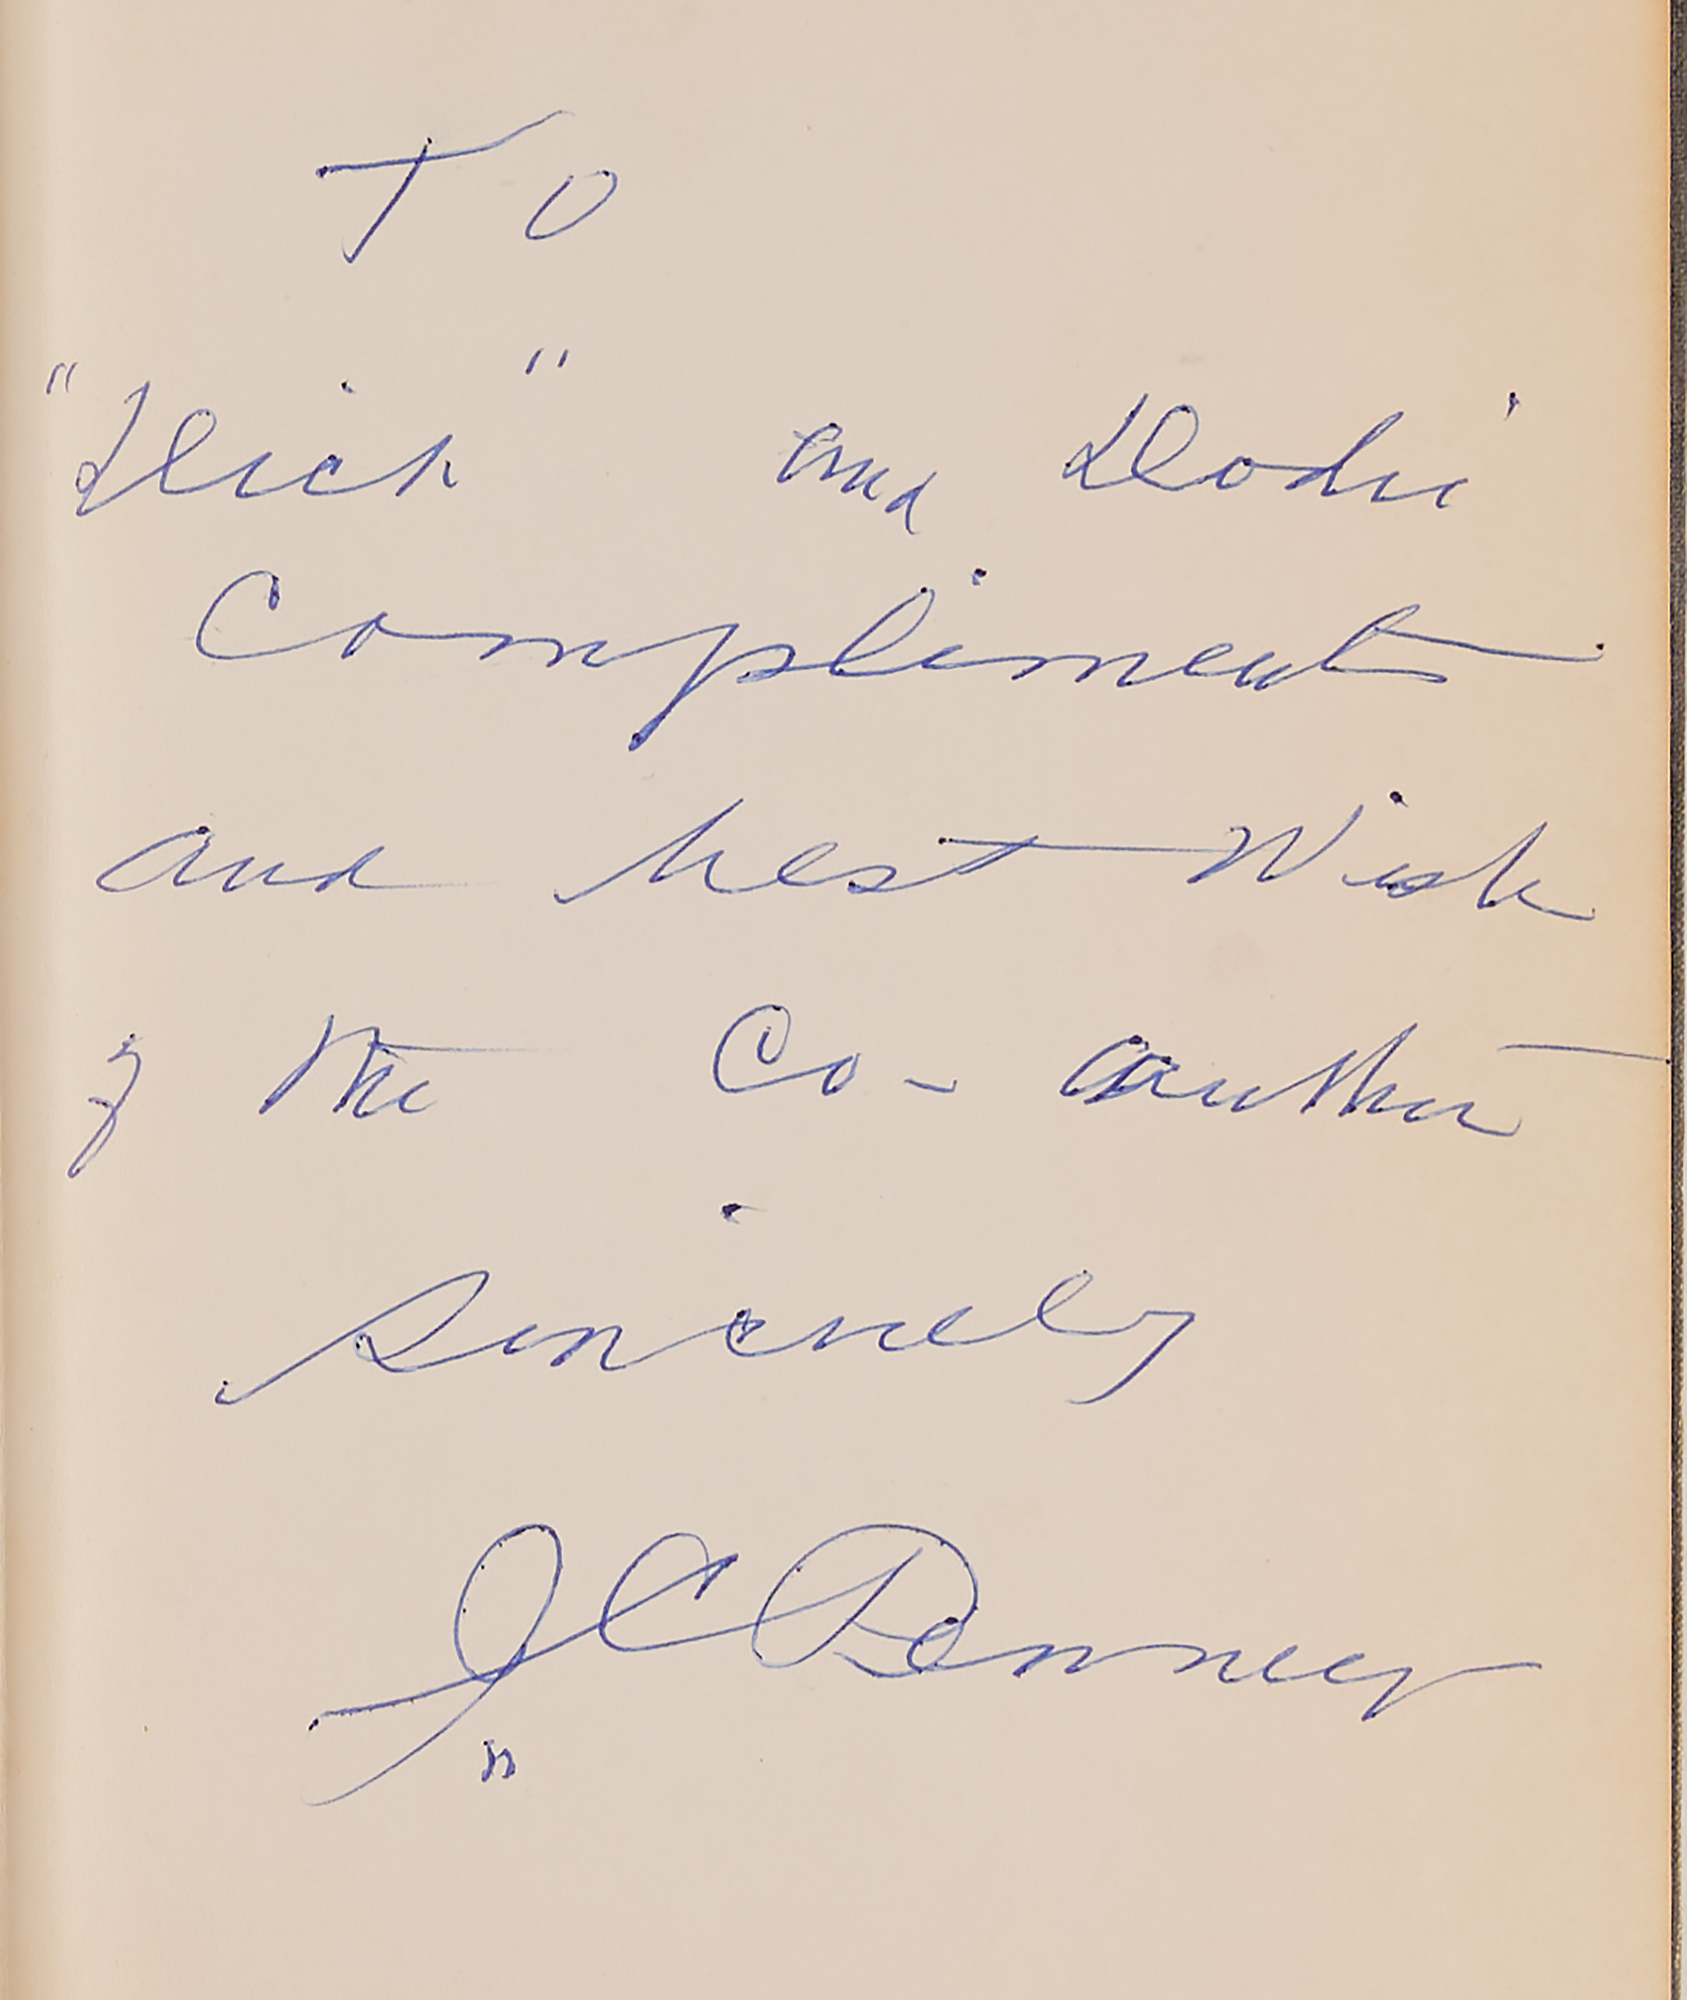 To
"Dick" and Dodie
Compliments
and best Wish
of the Co-author
Sincerely
J C Penney